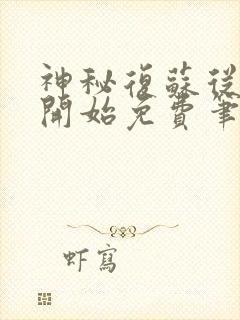 神秘復蘇從
開始免費筆
虾寫